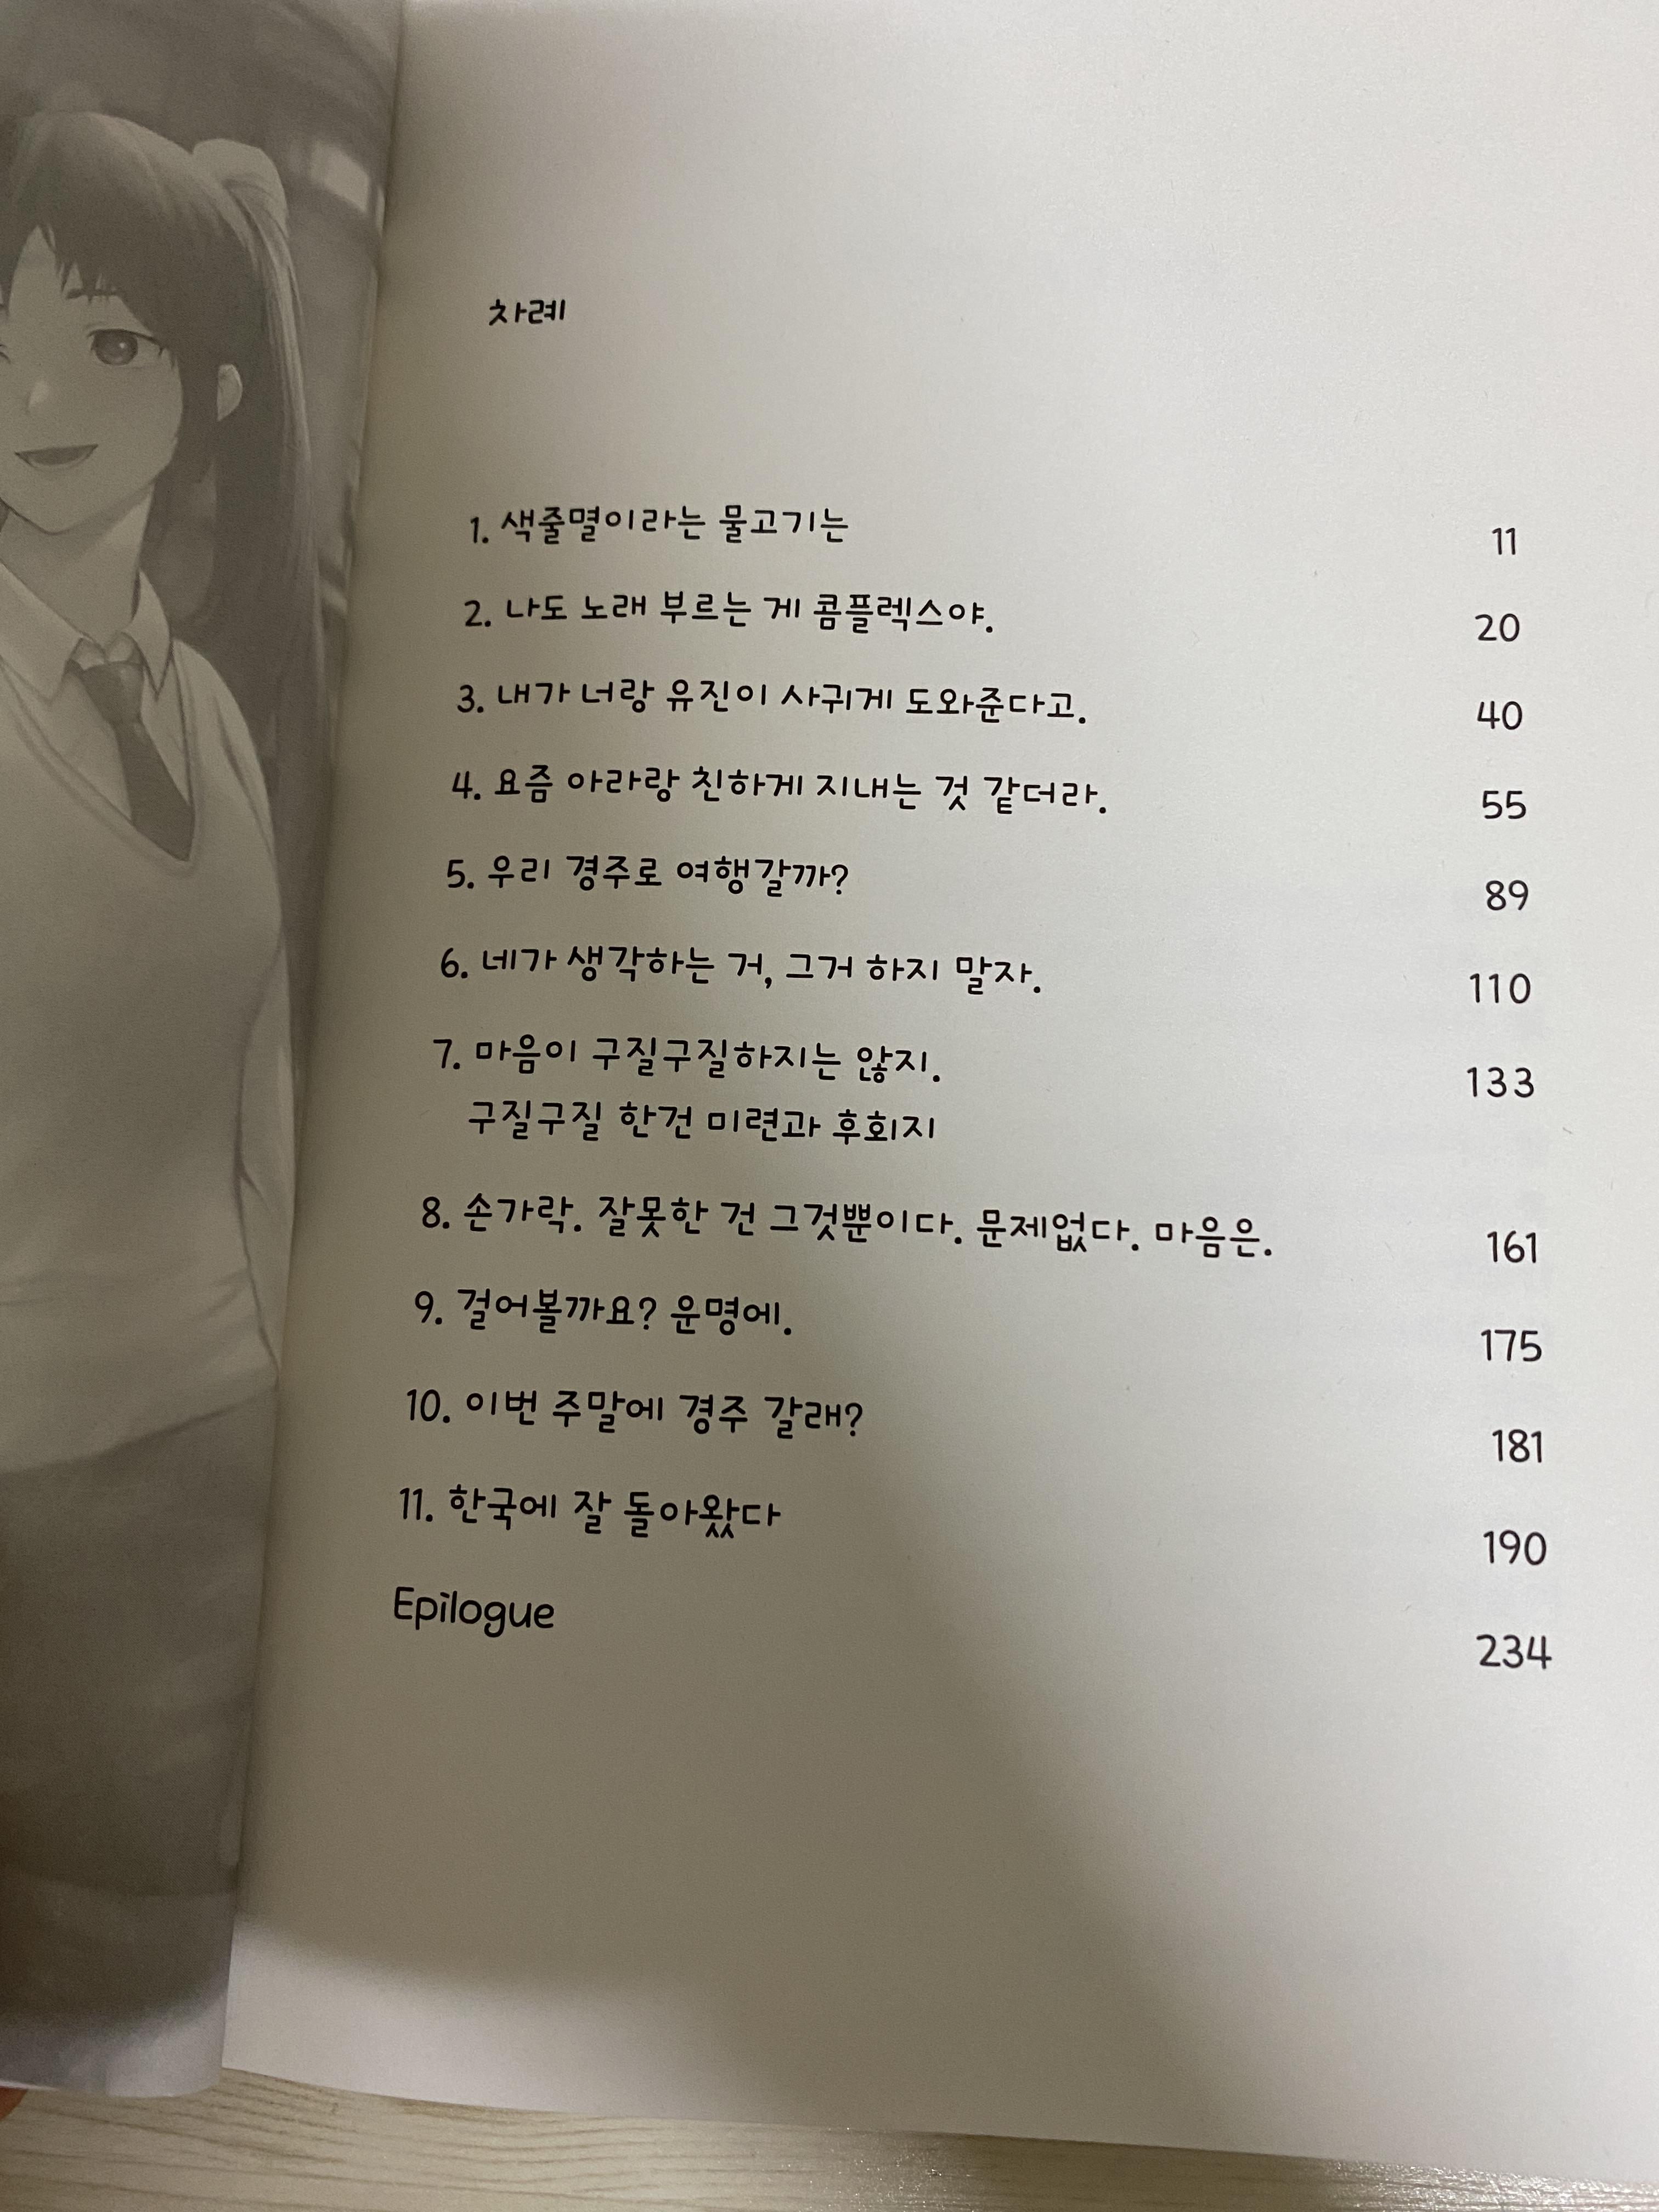 차례
1. 색줄멸이라는 물고기는 11
2. 나도 노래 부르는 게 콤플렉스야. 20
3. 내가 너랑 유진이 사귀게 도와준다고. 40
4. 요즘 아라랑 친하게 지내는 것 같더라. 55
5. 우리 경주로 여행갈까? 89
6. 네가 생각하는 거, 그거 하지 말자. 110
7. 마음이 구질구질하지는 않지. 133
구질구질 한건 미련과 후회지
8. 손가락. 잘못한 건 그것뿐이다. 문제없다. 마음은. 161
9. 걸어볼까요? 운명에. 175
10. 이번 주말에 경주 갈래? 181
11. 한국에 잘 돌아왔다 190
Epilogue 234